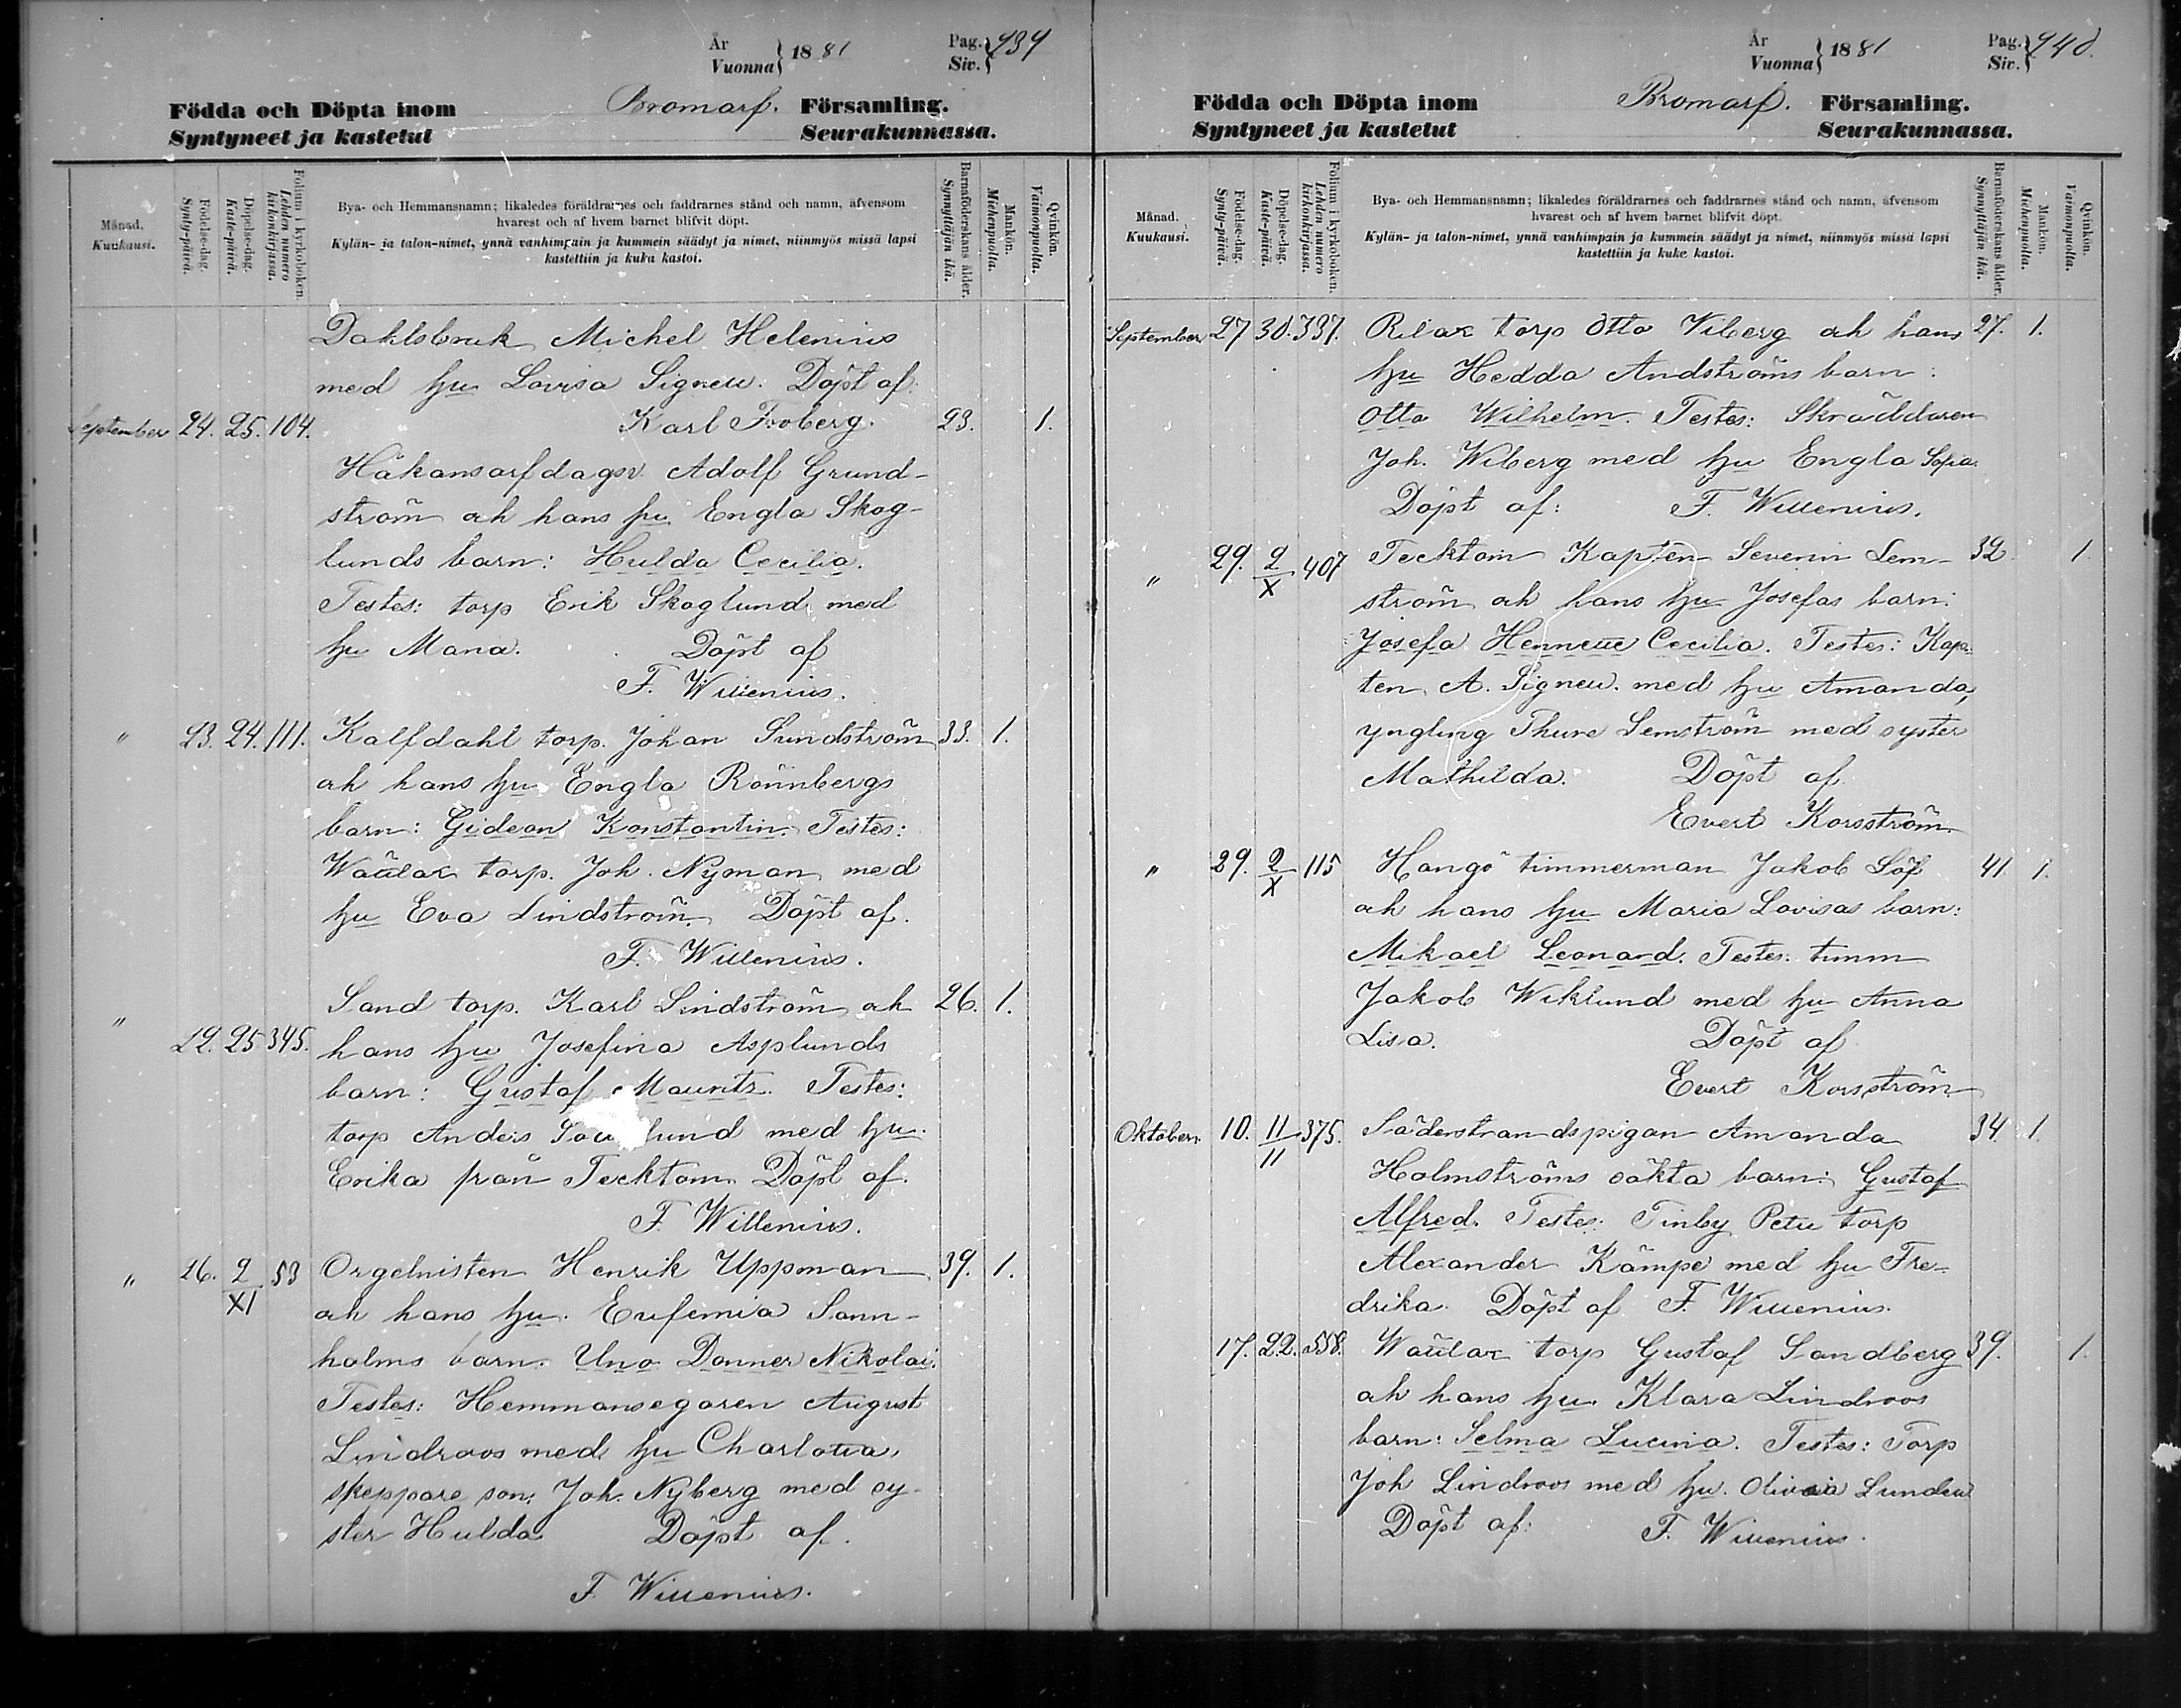 År
Vuonna } 1881
Pag.
Siv. } 939
Födda och Döpta inom Bromarf. Församling.
Syntyneet ja kastetut Seurakunnassa.
Månad.
Kuukausi.
Födelse-dag.
Synty-päivä.
Döpelse-dag.
Kaste-päivä.
Folium i kyrkoboken.
Lehden numero
kirkonkirjassa.
Bya- och Hemmansnamn; likaledes föräldrarnes och faddrarnes stånd och namn, äfvensom
hvarest och af hvem barnet blifvit döpt.
Kylän- ja talon-nimet, ynnä vanhimpain ja kummein säädyt ja nimet, niinmyös missä lapsi
kastettiin ja kuka kastoi.
Barnaföderskans ålder.
Synnyttäjän ikä.
Mankön.
Miehenpuolta.
Qvinkön.
Vaimonpuolta.
Dahlsbruk Michel Helenius
med hu Lovisa Signell. Döpt af:
Karl Froberg.
September 24. 25. 104. 23. 1.
Håkansarf dagsv. Adolf Grund-
ström och hans hu Engla Skog-
lunds barn: Hulda Cecilia.
Testes: torp Erik Skoglund med
hu Maria. Döpt af
F. Willenius.
" 23. 24. 111. Kalfdahl torp. Johan Sundström 33. 1.
och hans hu Engla Rönnbergs
barn: Gideon Konstantin. Testes:
Wättlax torp. Joh. Nyman med
hu Eva Lindström. Döpt af.
F. Willenius.
" Sand torp. Karl Lindström och 26. 1.
22. 25 345. hans hu Josefina Asplunds
barn: Gustaf Mauritz. Testes:
torp Anders lund med hu.
Erika från Tecktom. Döpt af.
F. Willenius.
" 26. 2/XI 53 Orgelnisten Henrik Uppman 39. 1.
och hans hu. Eufemia Sann-
holms barn. Uno Donner Nikolai.
Testes: Hemmansegaren August
Lindroos med hu Charlotta,
skeppare son. Joh. Nyberg med sy-
ster Hulda Döpt af.
F Willenius.
År
Vuonna } 1881
Pag.
Siv. } 940.
Födda och Döpta inom Bromarf. Församling.
Syntyneet ja kastetut Seurakunnassa.
Månad.
Kuukausi.
Födelse-dag.
Synty-päivä.
Döpelse-dag.
Kaste-päivä.
Folium i kyrkoboken.
Lehden numero
kirkonkirjassa.
Bya- och Hemmansnamn; likaledes föräldrarnes och faddrarnes stånd och namn, äfvensom
hvarest och af hvem barnet blifvit döpt.
Kylän- ja talon-nimet, ynnä vanhimpain ja kummein säädyt ja nimet, niinmyös missä lapsi
kastettiin ja kuka kastoi.
Barnaföderskans ålder.
Synnyttäjän ikä.
Mankön.
Miehenpuolta.
Qvinkön.
Vaimonpuolta.
September 27 30. 337. Rilax torp Otto Viberg och hans 27. 1.
hu Hedda Andströms barn:
Otto Wilhelm. Testes: Skräddaren
Joh. Wiberg med hu Engla Sofia.
Döpt af: F. Willenius.
" 29. 2/X 407 Tecktom Kapten Severin Lem- 32 1.
ström och hans hu Josefas barn:
Josefa Henriette Cecilia. Testes: Kap-
ten A. Signell. med hu Amanda,
yngling Thure Lemström med syster
Mathilda. Döpt af
Evert Korsström.
" 29. 2/X 115 Hangö timmerman Jakob Löf 41. 1.
och hans hu Maria Lovisas barn:
Mikael Leonard. Testes: timm
Jakob Wiklund med hu Anna
Lisa. Döpt af
Evert Korsström
Oktober. 10. 11/11 375. Söderstrandspigan Amanda 34. 1.
Holmströms oäkta barn: Gustaf
Alfred. Testes: Finby Petu torp
Alexander Kämpe med hu Fre-
drika. Döpt af F. Willenius.
17. 22. 558. Wättlax torp Gustaf Sandberg 39. 1.
och hans hu. Klara Lindroos
barn: Selma Lucina. Testes: Torp
Joh Lindroos med hu. Olivia Lundell
Döpt af: F. Willenius.